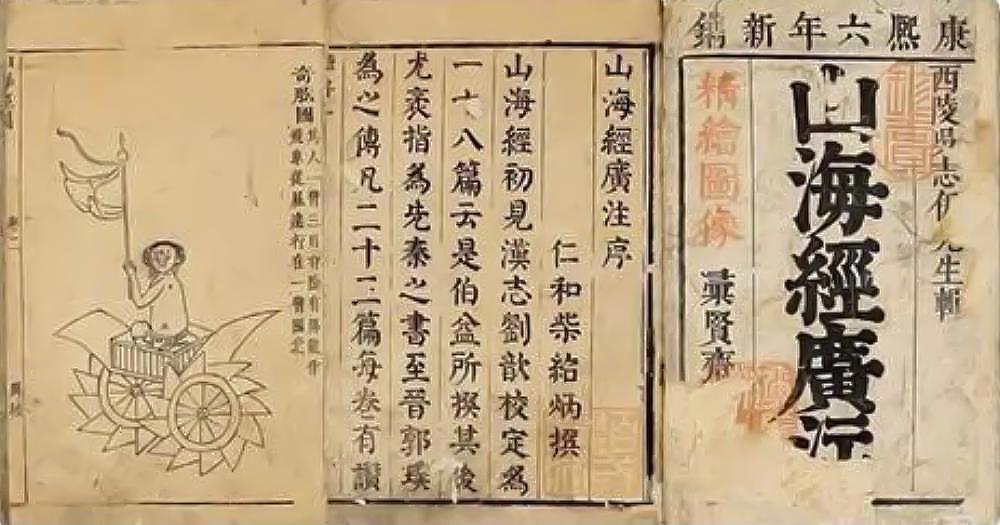 康熙六年新鐫
西陵吳志伊先生輯
山海經廣注
精繪圖像
彙賢齋
山海經廣注序
仁和柴紹炳撰
山海經初見漢志劉歆校定為
一十八篇云是伯益所撰其後
尤袤指為先秦之書至晉郭璞
為之傳凡二十三篇每卷有讃
奇肱國
其人一臂三目有陰有陽能作
飛車從風遠行在一臂國北